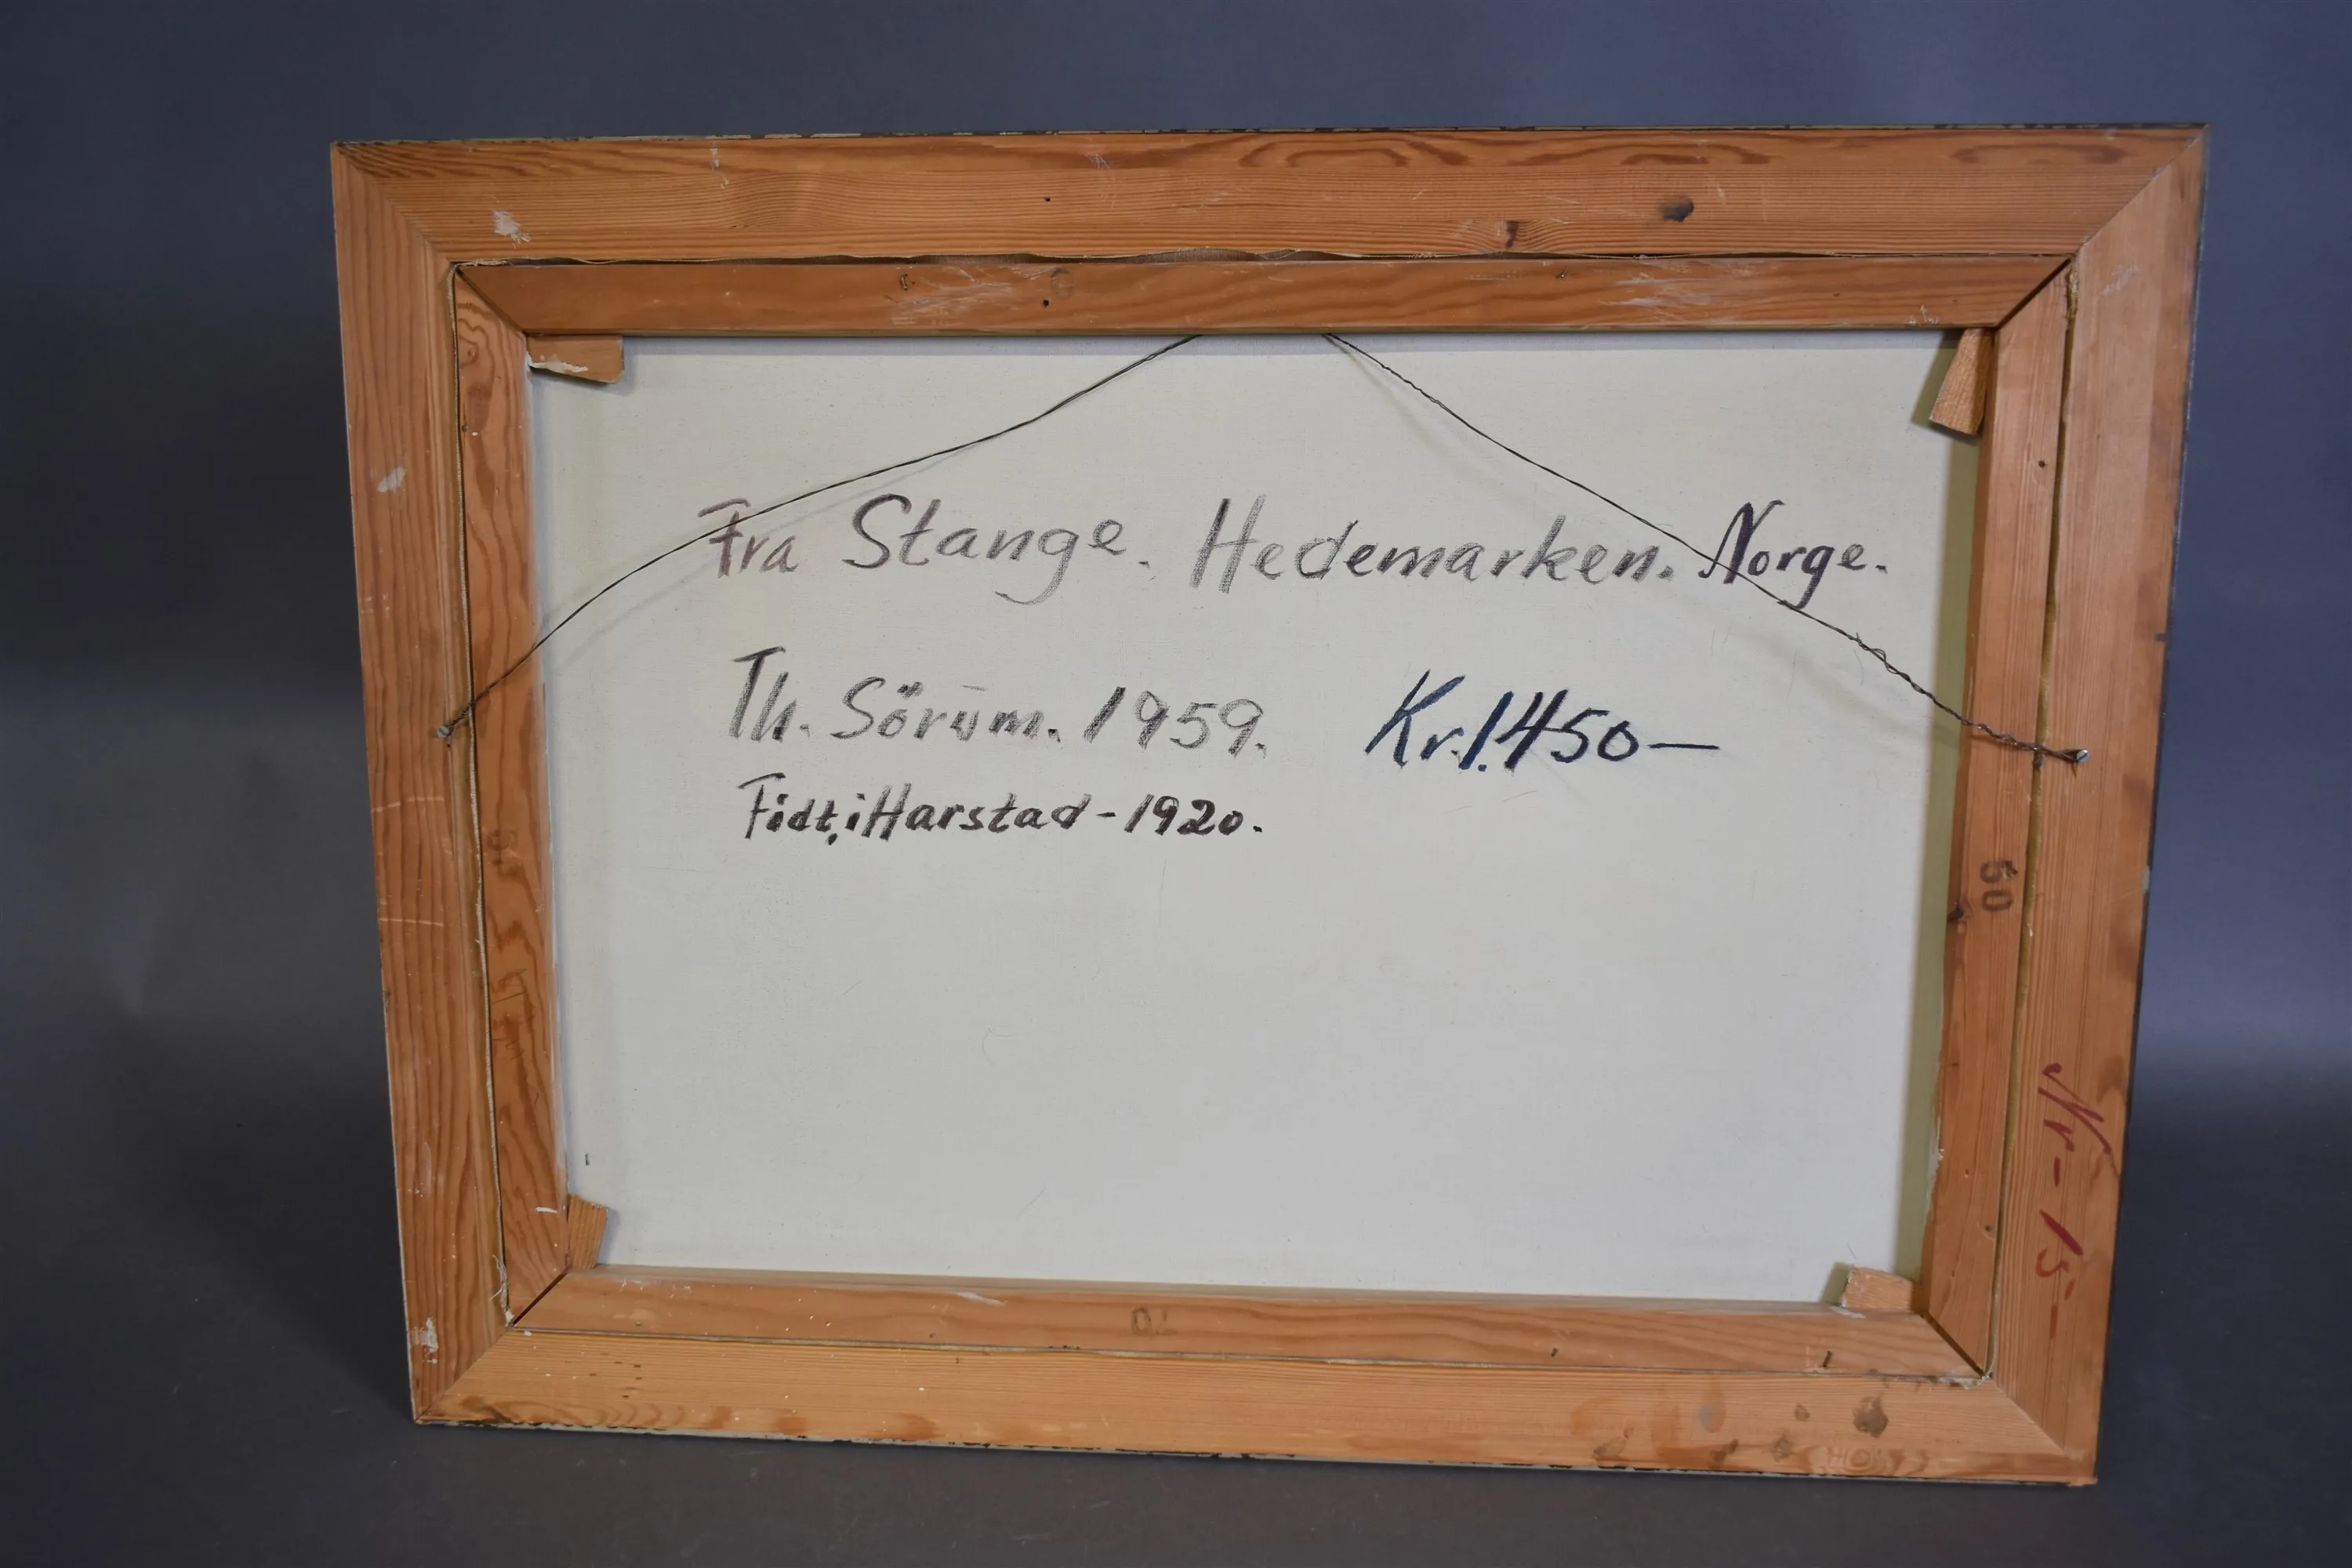 Fra Stange. Hedemarken. Norge.
Th. Sörum. 1959. Kr. 1.450—
Födt, i Harstad - 1920.
50
Nr - 15 -